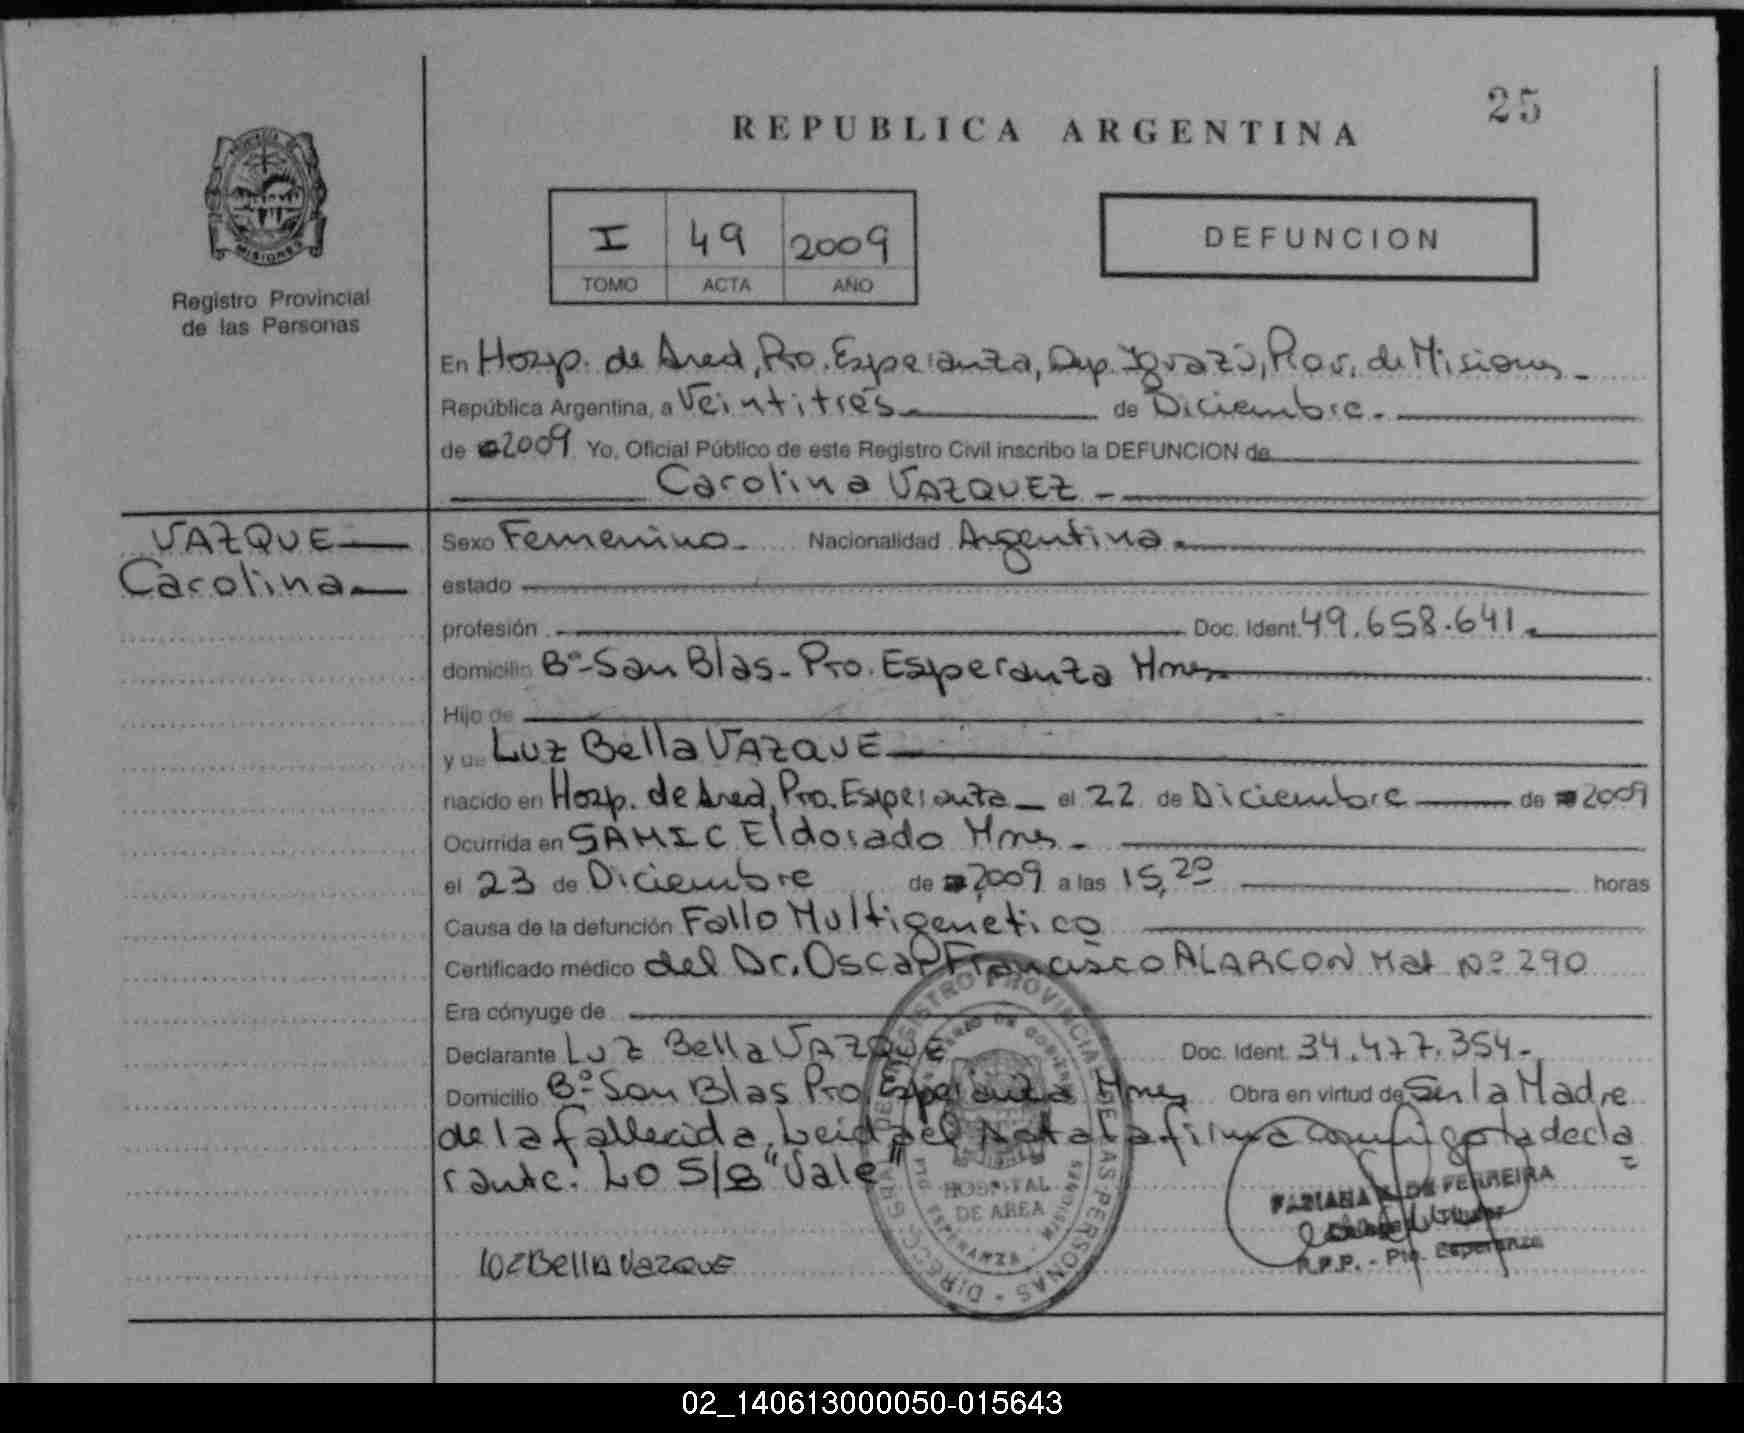 25
REPUBLICA ARGENTINA
MISIONES
Registro Provincial
de las Personas
I 49 2009
TOMO ACTA AÑO
DEFUNCION
En Hosp. de Area, Pto. Esperanza, Dep. Iguazú, Prov. de Misiones
República Argentina, a Veintitrés de Diciembre
de 2009 Yo, Oficial Público de este Registro Civil inscribo la DEFUNCION de
Carolina VAZQUEZ
VAZQUE
Carolina
Sexo Femenino Nacionalidad Argentina
estado
profesión Doc. Ident. 49.658.641
domicilio Bº-San Blas- Pto. Esperanza Mnes
Hijo de
y de Luz Bella VAZQUE
nacido en Hosp. de Area, Pto. Esperanza el 22 de Diciembre de 2009
Ocurrida en SAMIC Eldorado Mnes
el 23 de Diciembre de 2009 a las 15,20 horas
Causa de la defunción Fallo Multigenetico
Certificado médico del Dr. Oscar Francisco ALARCON Mat Nº 290
Era cónyuge de
Declarante Luz Bella VAZQUE Doc. Ident. 34.477.354-
Domicilio Bº San Blas Pto Esperanza Mnes Obra en virtud de Ser la Madre
de la fallecida. Leida el Acta la firma conmigo la decla
rante. Lo S/8 "Vale"
LUZ Bella VAZQUE
HOSPITAL
DE AREA
PTO. ESPERANZA - MISIONES
REGISTRO PROVINCIAL DE LAS PERSONAS
FABIANA DE FERREIRA
Titular
R.P.P. - Pto. Esperanza
02_140613000050-015643